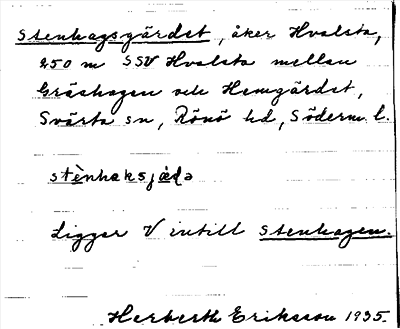 Stenhagsgärdet, åker Hvalsta,
250 m SSV Hvalsta mellan
Gräshagen och Hemgärdet,
Svärta sn, Rönö hd, Söderm. l.
stènhaksjæ̀ḍə
Ligger V intill Stenhagen.
Herberth Eriksson 1935.